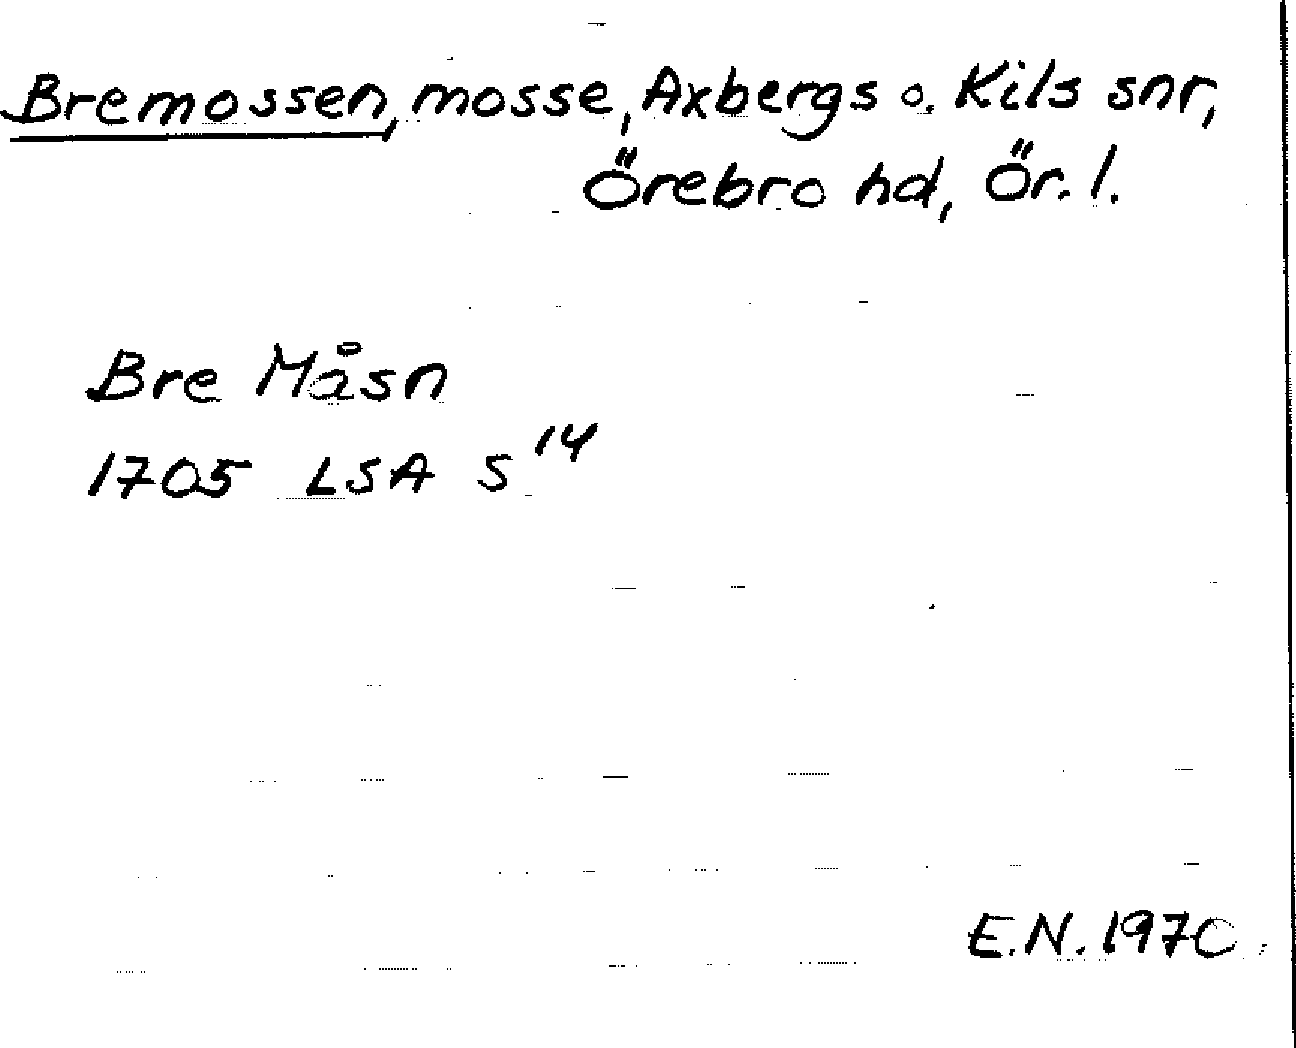 Bremossen, mosse, Axbergs o. Kils snr,
Örebro hd, Ör. l.
Bre Måsn
1705 LSA S 14
E.N. 1970